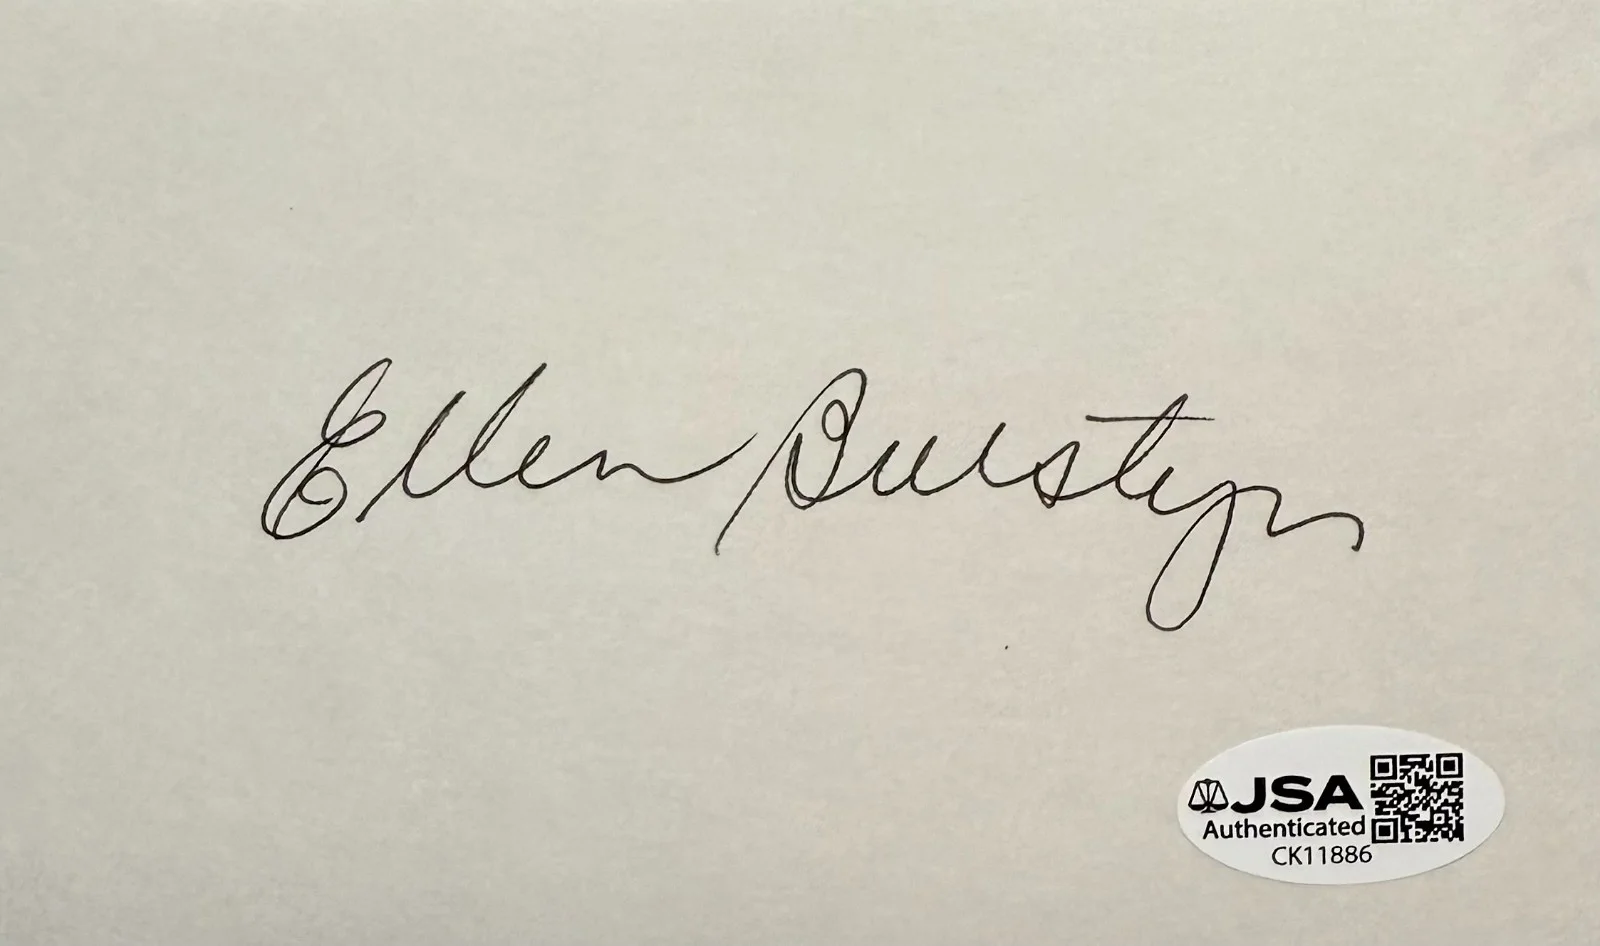 Ellen Burstyn
JSA
Authenticated
CK11886